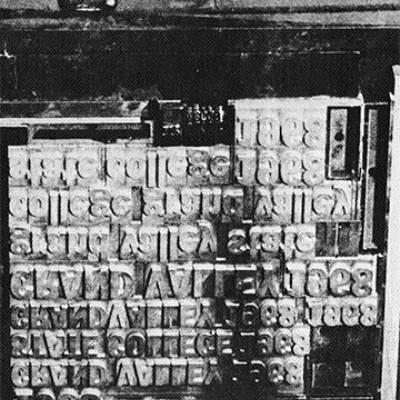 1968
state college 1968
college grand valley
grand valley state
GRAND VALLEY 1968
GRAND VALLEY 1968 1968
STATE COLLEGE 1968
GRAND VALLEY 1968